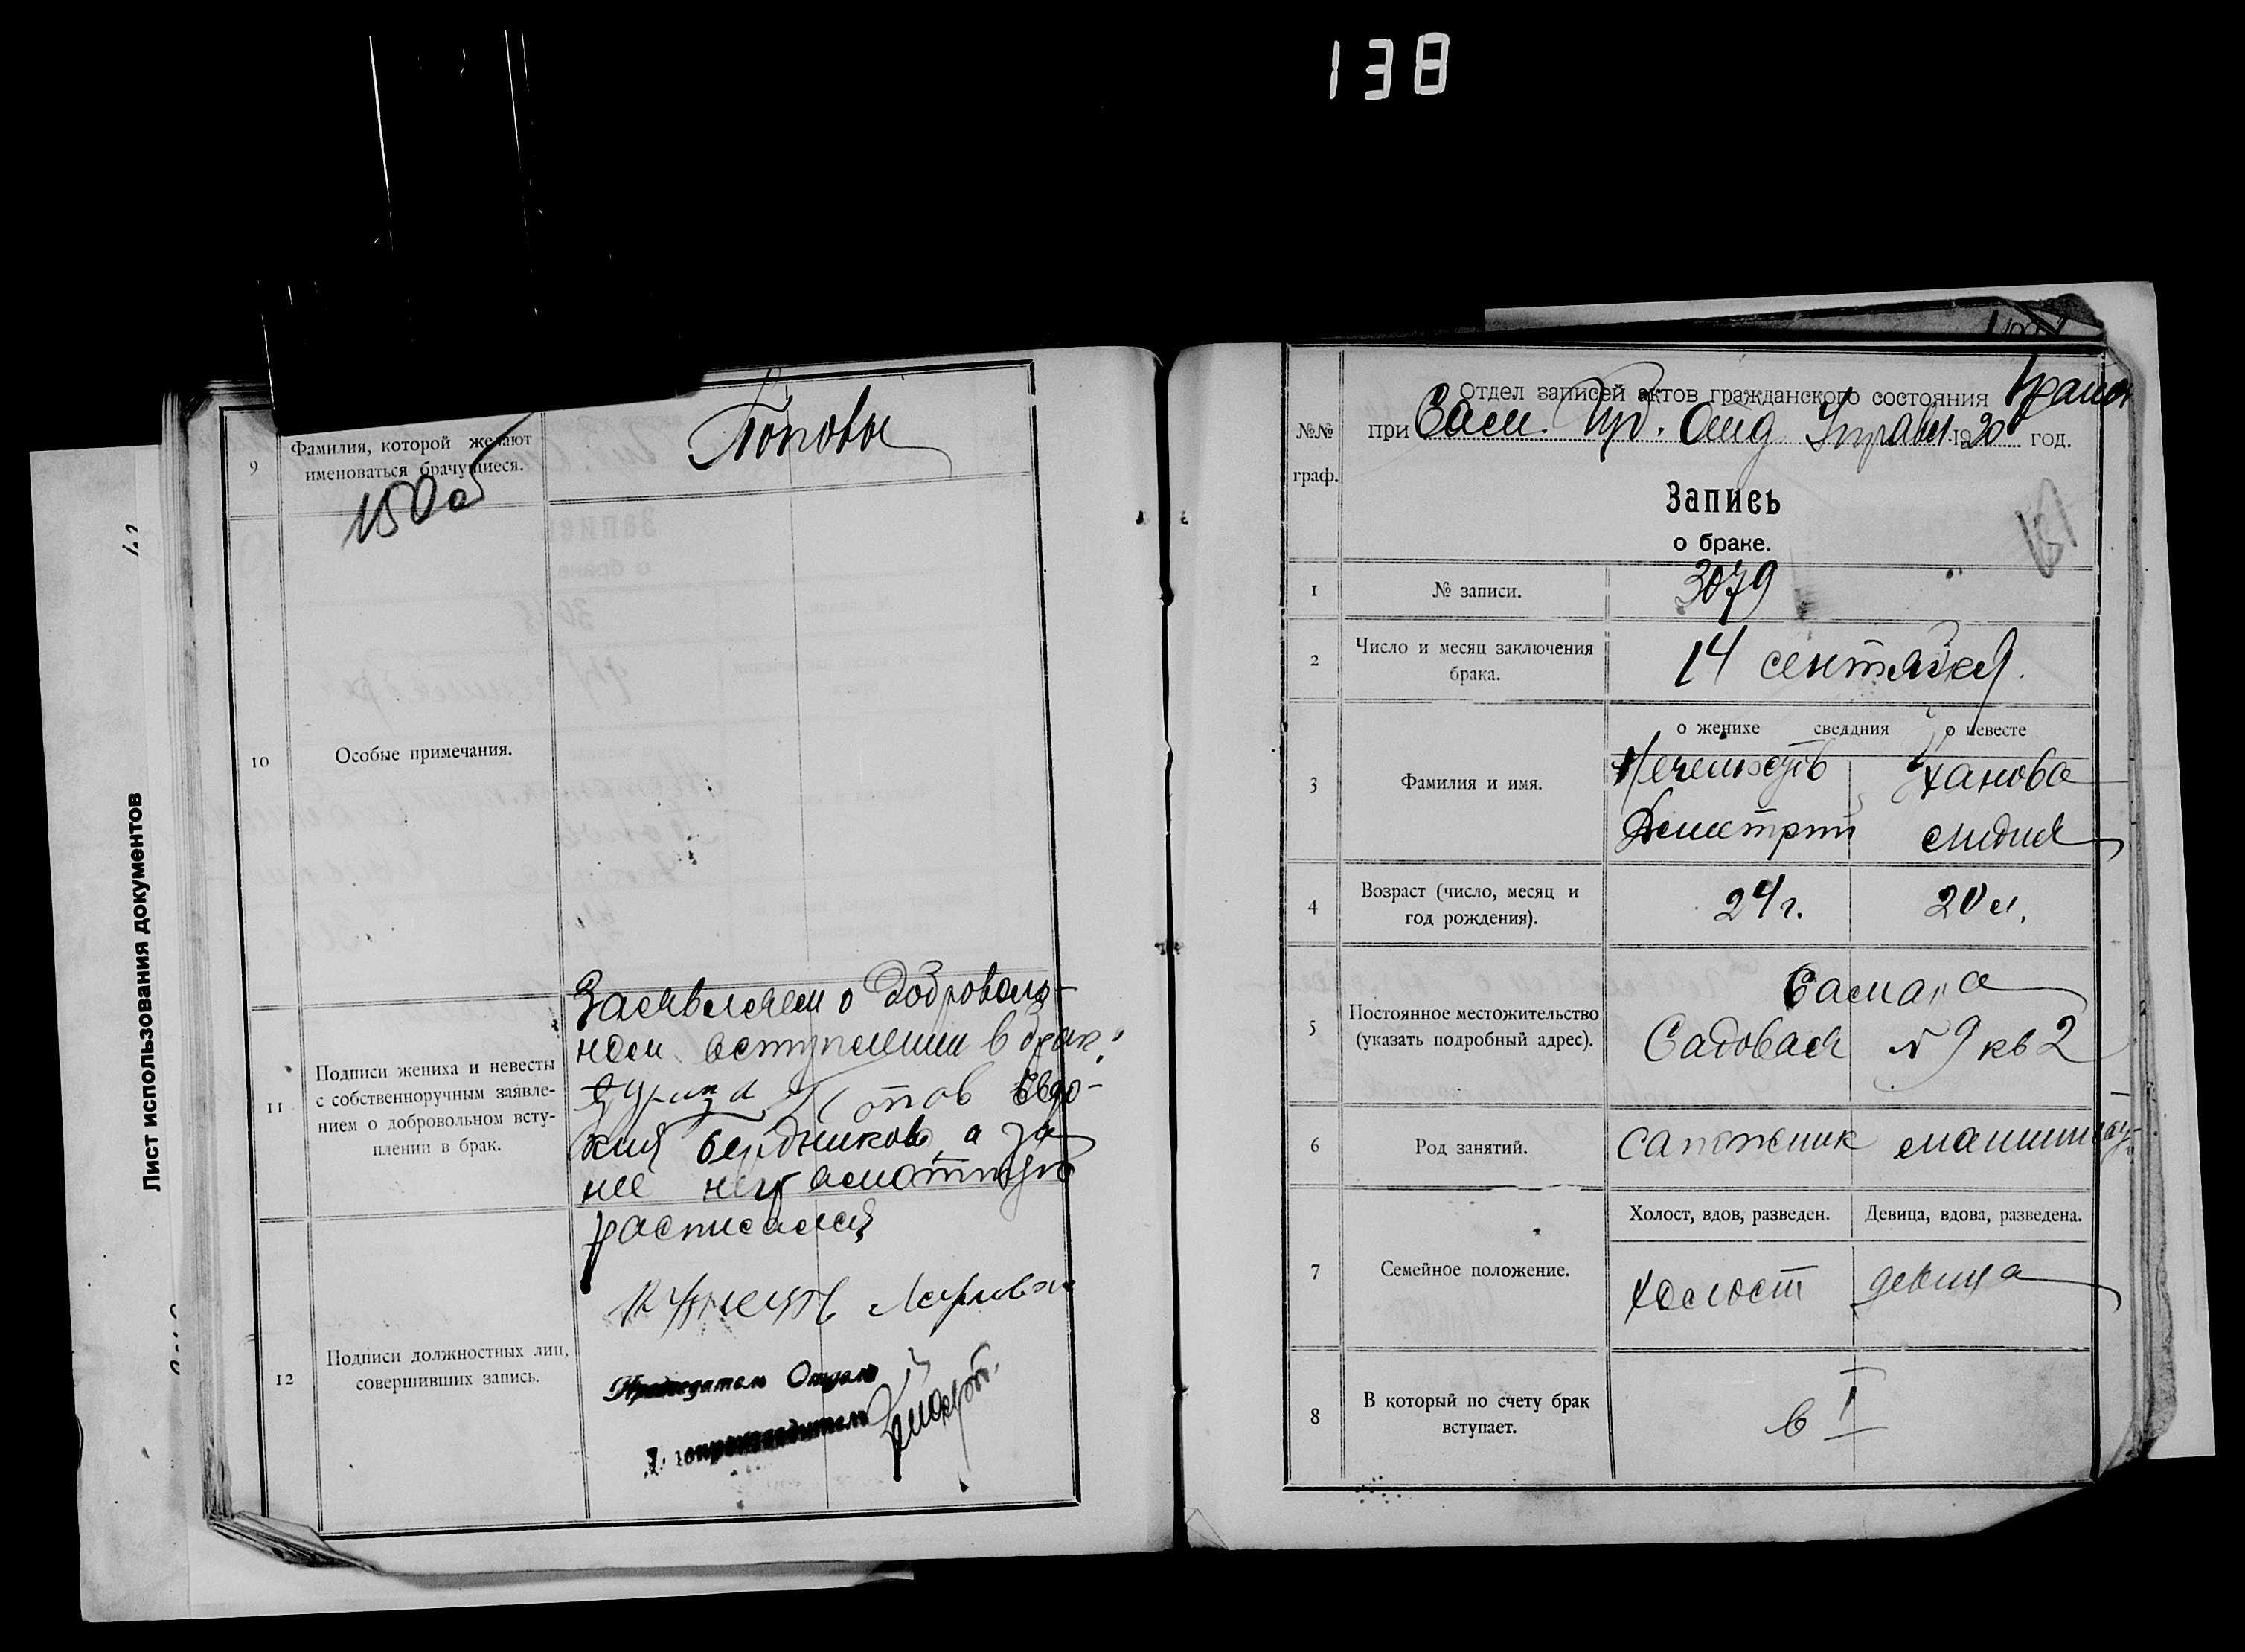 138
Лист использования документов
9
Фамилия, которой желают
именоваться брачущиеся.
Поповы
150об
10
Особые примечания.
11
Подписи жениха и невесты
с собственноручным заявле-
нием о добровольном всту-
плении в брак.
Заявляем о доброволь-
ном вступлении в брак:
Попов Евдо-
кия Бердников, а за
нее неграмотную
расписался
12
Подписи должностных лиц,
совершивших запись.
Председатель Отдела
Делопроизводитель
Отдел записей актов гражданского состояния
№№
граф.
при Сам. Отд Управл 1920 год.
Запись
о браке.
151
1
№ записи.
3079
2
Число и месяц заключения
брака.
14 сентября.
о женихе сведдния о невесте
3
Фамилия и имя.
Дмитрий Лидия
4
Возраст (число, месяц и
год рождения).
24 г. 20 л.
5
Постоянное местожительство
(указать подробный адрес).
Самара
Садовая № 9 кв 2
6
Род занятий.
сапожник
7
Семейное положение.
Холост, вдов, разведен. Девица, вдова, разведена.
холост девица
8
В который по счету брак
вступает.
в I